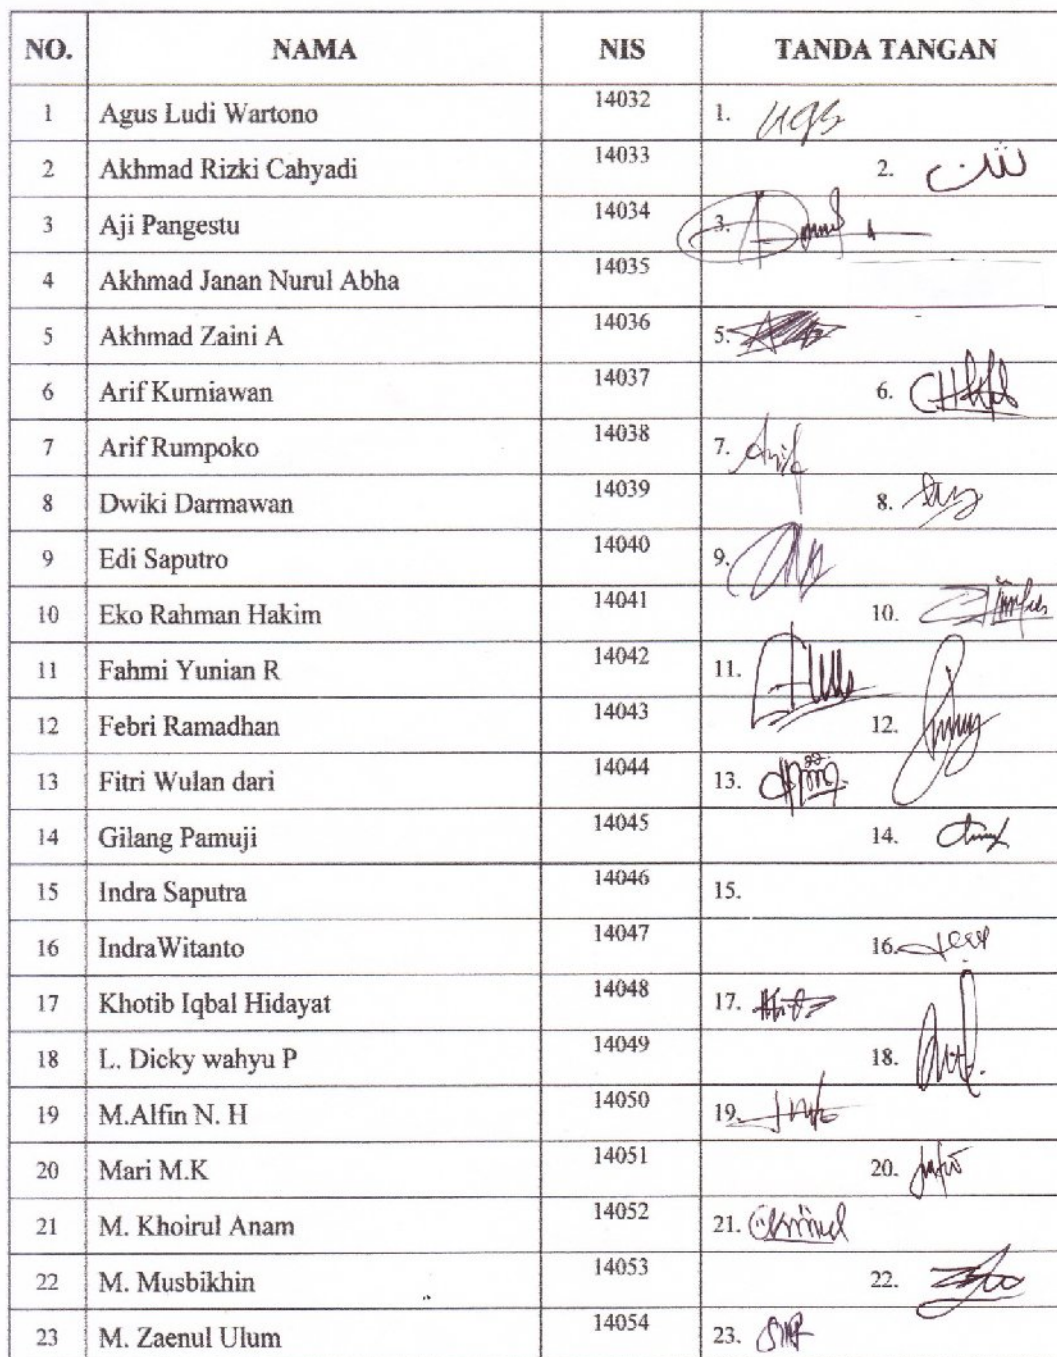 NO. NAMA NIS TANDA TANGAN
1 Agus Ludi Wartono 14032 1.
2 Akhmad Rizki Cahyadi 14033 2.
3 Aji Pangestu 14034 3.
4 Akhmad Janan Nurul Abha 14035
5 Akhmad Zaini A 14036 5.
6 Arif Kurniawan 14037 6.
7 Arif Rumpoko 14038 7. Arif
8 Dwiki Darmawan 14039 8.
9 Edi Saputro 14040 9.
10 Eko Rahman Hakim 14041 10.
11 Fahmi Yunian R 14042 11.
12 Febri Ramadhan 14043 12.
13 Fitri Wulan dari 14044 13.
14 Gilang Pamuji 14045 14.
15 Indra Saputra 14046 15.
16 IndraWitanto 14047 16.
17 Khotib Iqbal Hidayat 14048 17.
18 L. Dicky wahyu P 14049 18.
19 M.Alfin N. H 14050 19.
20 Mari M.K 14051 20.
21 M. Khoirul Anam 14052 21.
22 M. Musbikhin 14053 22.
23 M. Zaenul Ulum 14054 23.